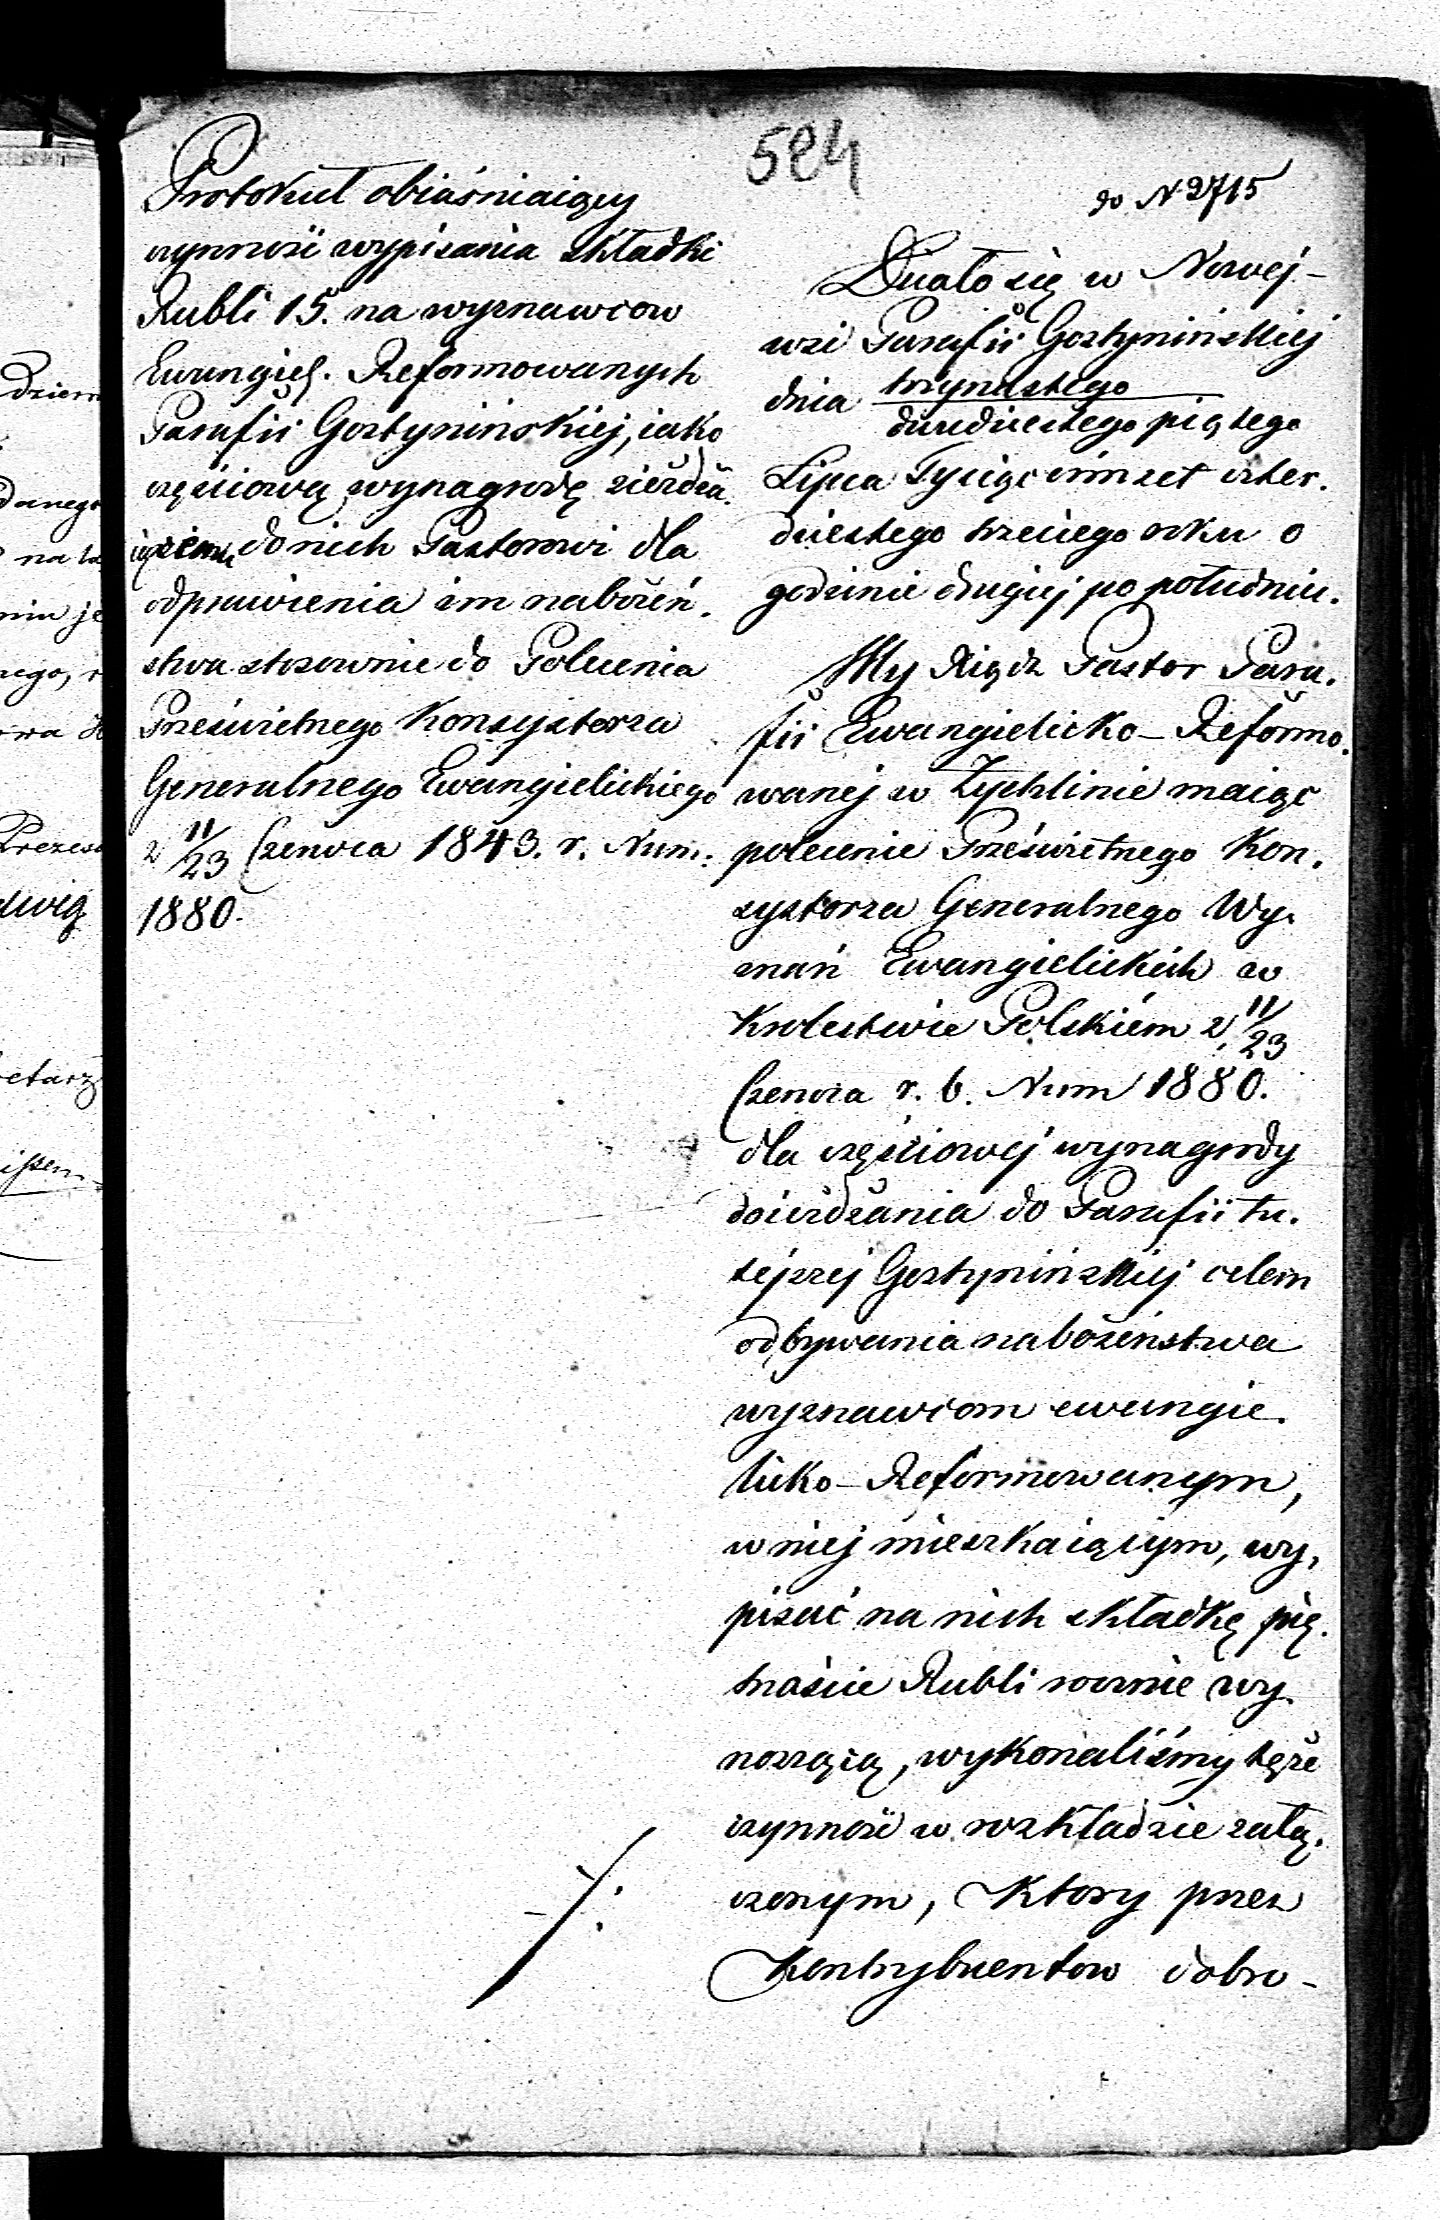 524
do N 2715
Protokuł obiaśniaiący
czynność wypisania składki
Rubli 15. na wyznawcow
Ewangiel. Reformowanych
Parafii Gostyninskiej, iako
częściową wynagrodę zieżdża
iącemu do nich Pastorowi dla
odprawienia im nabożeń.
stwa stosownie do Polecenia
Prześwietnego Konsystorza
Generalnego Ewangielickiego
z 11/23 Czerwca 1843. r. Num:
1880.
Działo się w Nowej-
wsi Parafii Gostynińskiej
dnia trzynastego
dwudziestego piątego
Lipca Tysiąc ośmset czter.
dziestego trzeciego roku o
godzinie drugiej po południu.
My Xiądz Pastor Para.
fii Ewangielicko-Reformo.
wanej w Zychlinie maiąc
polecenie Prześwietnego Kon.
systorza Generalnego Wy.
znań Ewangielickich w
Krolestwie Polskiém z 11/23
Czerwca r. b. Num 1880.
dla częściowej wynagrody
doieżdżania do Parafii tu.
tejszej Gostynińskiej celem
odbywania nabożeństwa
wyznawcom ewangie.
licko-Reformowanym,
w niej mieszkaiącym, wy,
pisać na nich składkę pię.
tnaście Rubli rownie wy
noszącą, wykonaliśmy tęże
czynność w rozkładzie załą.
czonym, Ktory przez
Kontrybuentow dobro-
dziem
danego
na
nim je
nego,
Prezes
dwig
etarz